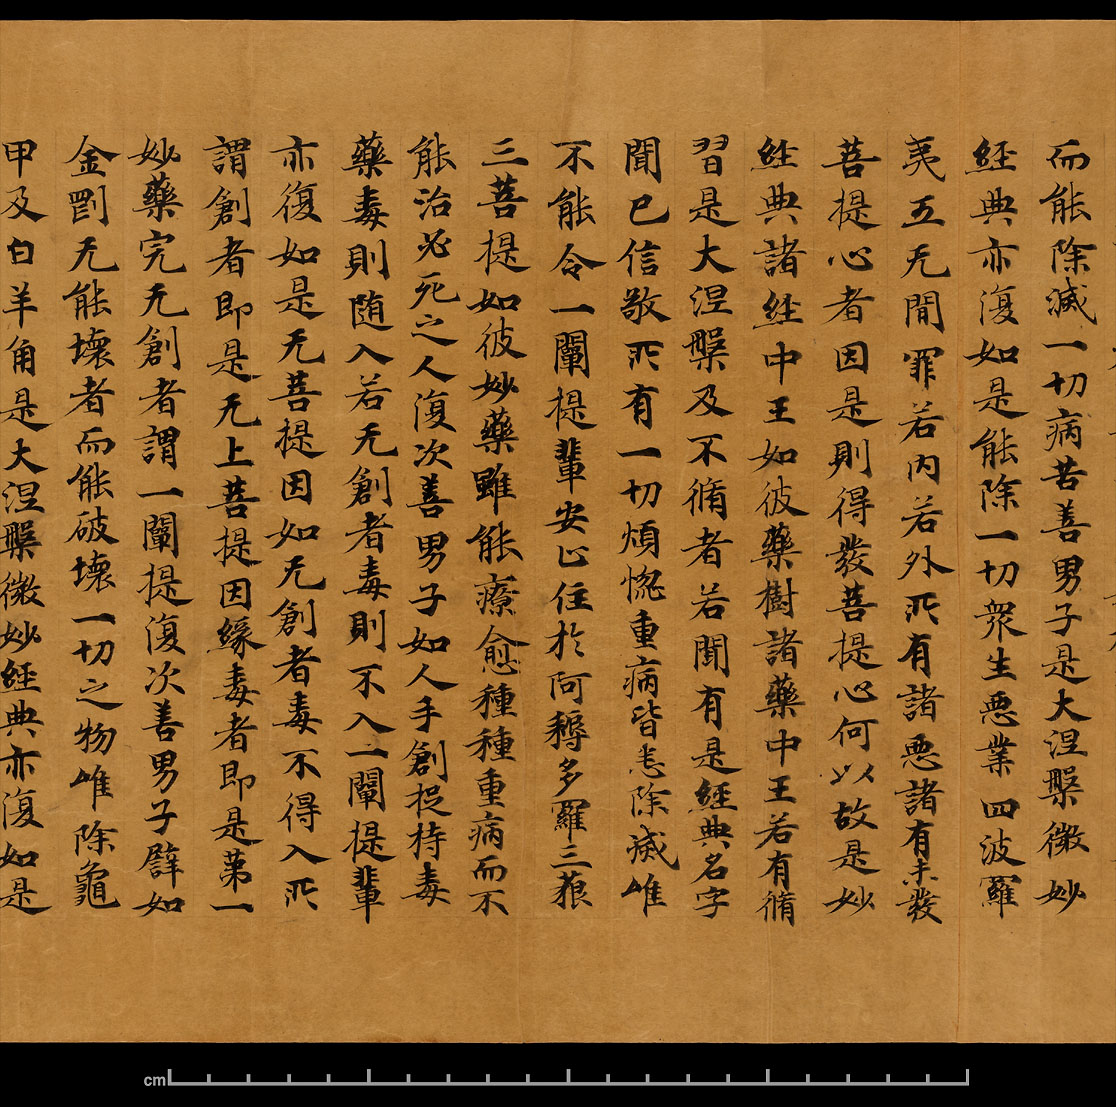 而能除滅一切病苦善男子是大涅槃微妙
經典亦復如是能除一切衆生悪業四波羅
夷五无間罪若内若外所有諸悪諸有未發
菩提心者因是則得發菩提心何以故是妙
經典諸經中王如彼藥樹諸藥中王若有脩
習是大涅槃及不脩者若聞有是經典名字
聞已信敬所有一切煩惚重病皆悉除滅唯
不能令一闡提輩安止住於阿耨多羅三藐
三菩提如彼妙藥雖能療愈種種重病而不
能治必死之人復次善男子如人手創捉持毒
藥毒則随入若无創者毒則不入一闡提輩
亦復如是无菩提因如无創者毒不得入所
謂創者即是无上菩提因緣毒者即是苐一
妙藥完无創者謂一闡提復次善男子譬如
金剛无能壞者而能破壞一切之物唯除龜
甲及白羊角是大涅槃微妙經典亦復如是